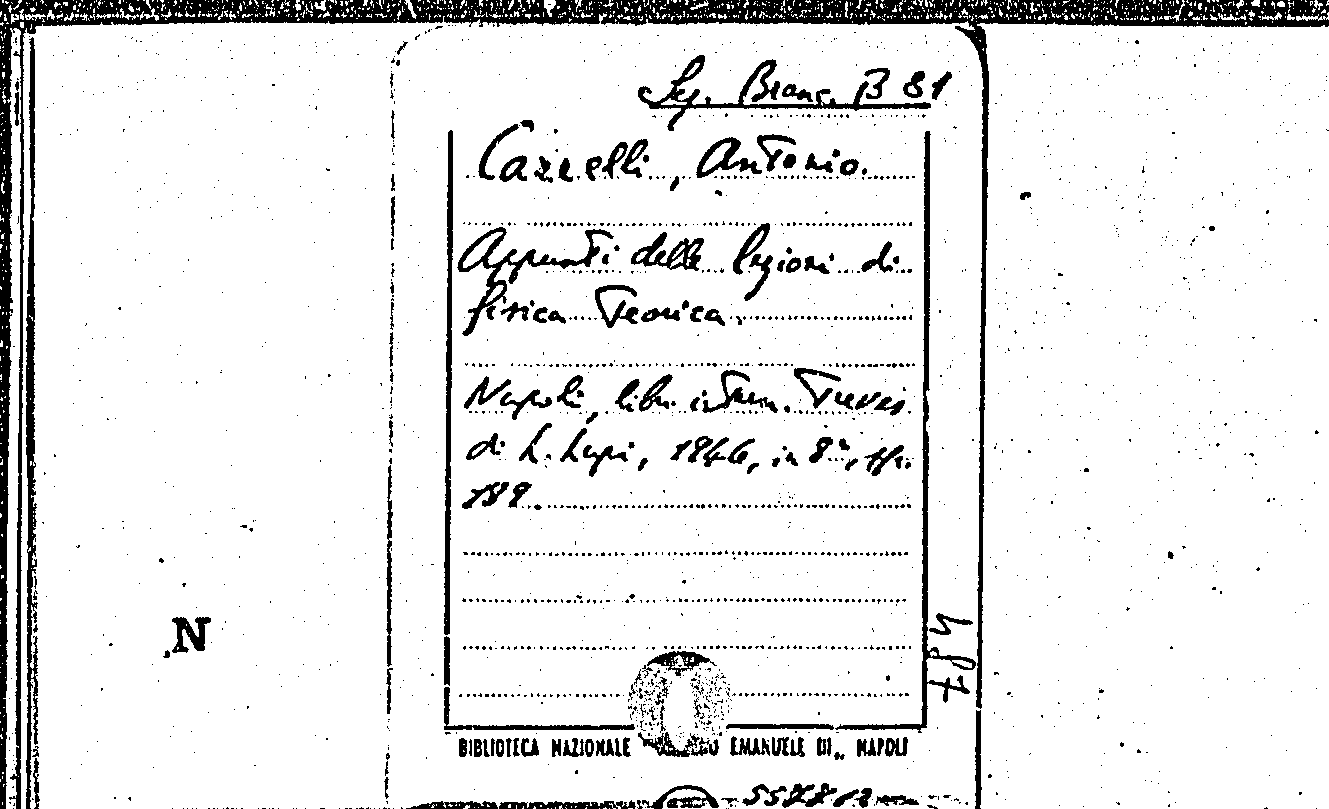 Seg. Branc. B 81
Cazzelli, Antonio.
Appunti delle lezioni di
fisica Teorica.
Napoli, libr. intern. Treves
di L. Lupi, 1946, in 8°, pp.
189.
784
N
BIBLIOTECA NAZIONALE EMANUELE III„ NAPOLI